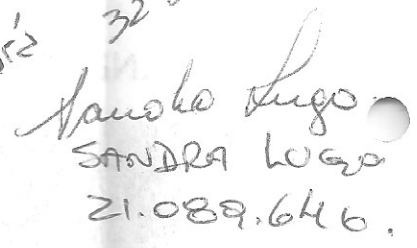 32
Sandra Lugo
SANDRA LUGO
21.089.646.